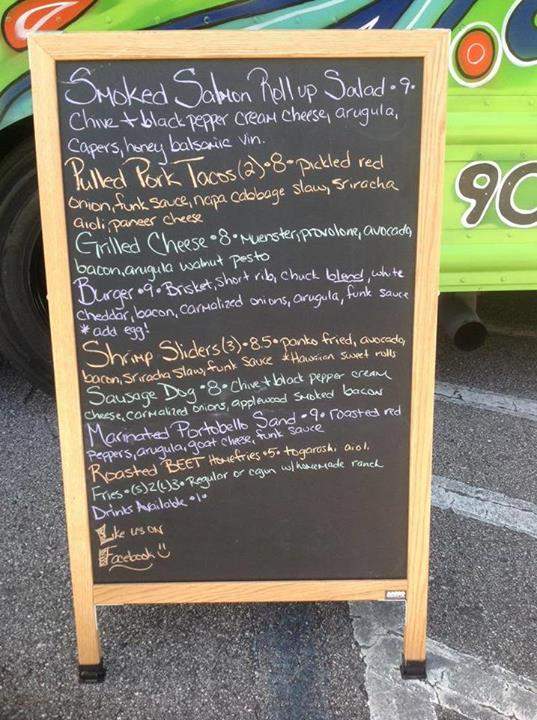 Smoked Salmon Roll up Salad • 9 •
Chive + black pepper cream cheese, arugula,
Capers, honey balsamic vin.
Pulled Pork Tacos (2) • 8 • pickled red
onion, funk sauce, napa cabbage slaw, sriracha
aioli, paneer cheese
Grilled Cheese • 8 • Muenster, provolone, avocado,
bacon, arugula walnut pesto
Burger • 9 • Brisket, short rib, chuck blend, white
cheddar, bacon, carmalized onions, arugula, funk sauce
* add egg!
Shrimp Sliders (3) • 8.5 • panko fried, avocado,
bacon, sriracha slaw, funk sauce * Hawaiian sweet rolls
Sausage Dog • 8 • Chive + black pepper cream
cheese, carmalized onions, applewood smoked bacon
Marinated Portobello Sand • 9 • roasted red
peppers, arugula, goat cheese, funk sauce
Roasted BEET Homefries • 5 • togarashi aioli
Fries • (S) 2 (L) 3 • Regular or cajun w/ homemade ranch
Drinks Available • 1 •
Like us on
Facebook
90